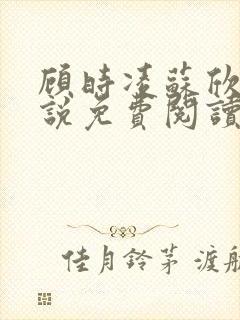 顾時凌蘇欣
說免費閱讀
佳月鈴茅 渡航